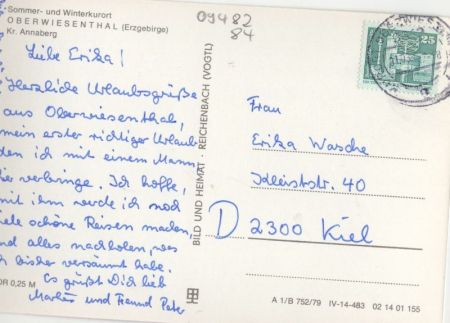 Sommer- und Winterkurort
OBERWIESENTHAL (Erzgebirge)
Kr. Annaberg
09482
84
25
Liebe Erika!
Herzliche Urlaubsgrüße
aus Oberwiesenthal,
mein erster richtiger Urlaub
den ich mit einem Mann
verbringe. Ich hoffe,
mit ihm werde ich noch
viele schöne Reisen machen,
und alles nachholen, was
ich bisher versäumt habe.
Es grüßt Dich lieb
und Freund Peter
BILD UND HEIMAT · REICHENBACH (VOGTL)
Frau
Erika Wasche
Kleiststr. 40
D 2300 Kiel
0,25 M
A 1/B 752/79 IV-14-483 02 14 01 155